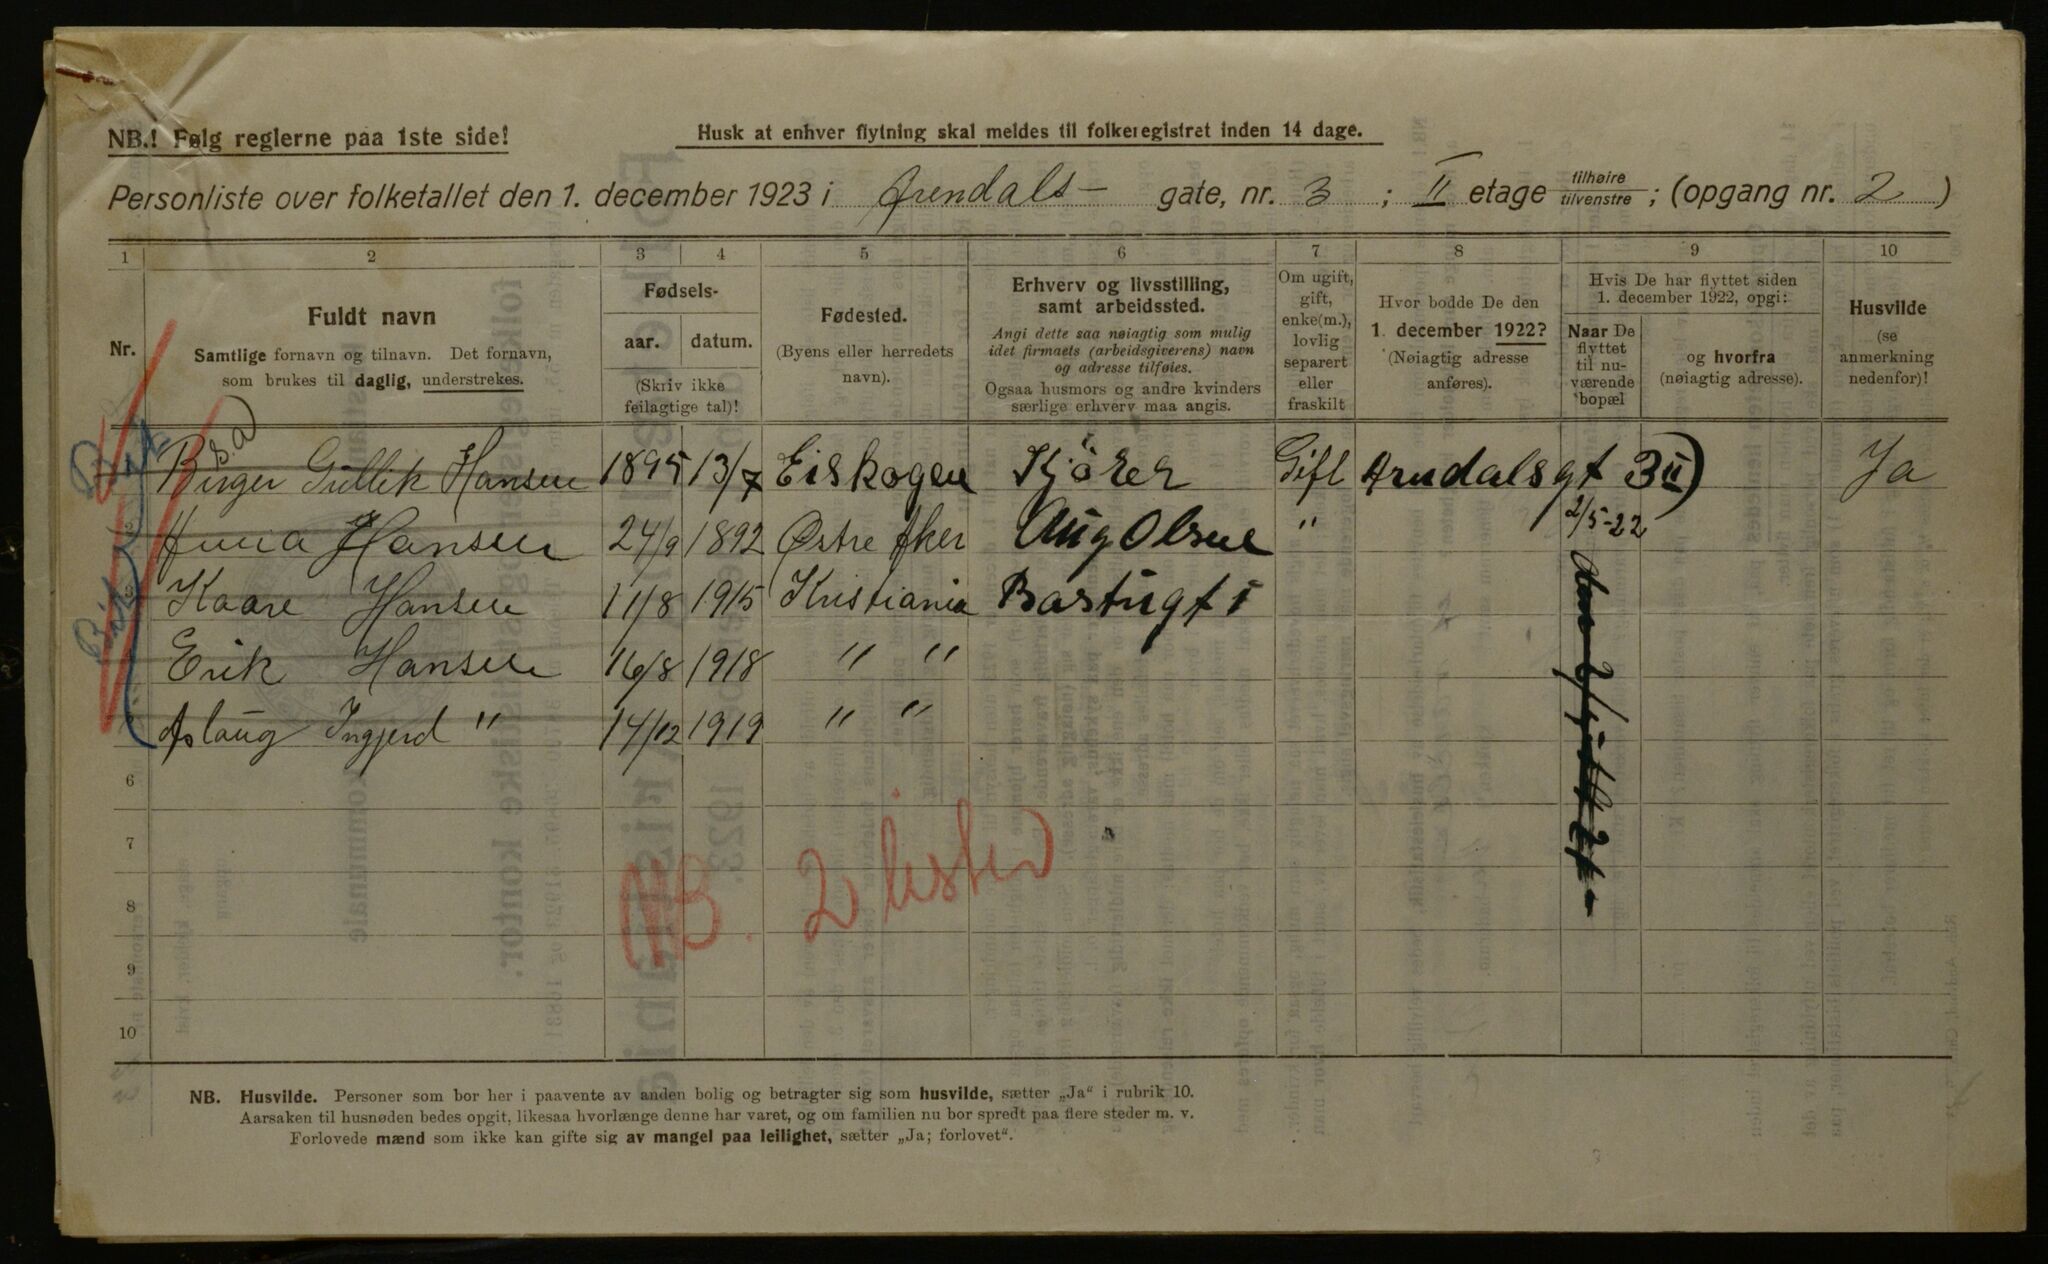 NB.! Følg reglerne paa 1ste side!
Husk at enhver flytning skal meldes til folkeregistret inden 14 dage.
Personliste over folketallet den 1. december 1923 i Arendals- gate, nr. 3 ; II etage tilhøire tilvenstre ; (opgang nr. 2 )
1 2 3 4 5 6 7 8 9 10
Nr.
Fuldt navn
Samtlige fornavn og tilnavn. Det fornavn,
som brukes til daglig, understrekes.
Fødsels-
aar. datum.
(Skriv ikke
feilagtige tal)!
Fødested.
(Byens eller herredets
navn).
Erhverv og livsstilling,
samt arbeidssted.
Angi dette saa nøiagtig som mulig
idet firmaets (arbeidsgiverens) navn
og adresse tilføies.
Ogsaa husmors og andre kvinders
særlige erhverv maa angis.
Om ugift,
gift,
enke(m.),
lovlig
separert
eller
fraskilt
Hvor bodde De den
1. december 1922?
(Nøiagtig adresse
anføres).
Hvis De har flyttet siden
1. december 1922, opgi:
Naar De
flyttet
til nu-
værende
bopæl
og hvorfra
(nøiagtig adresse).
Husvilde
(se
anmerkning
nedenfor)!
Birger Gullik Hansen 1895 13/7 Eiskogen Kjörer Gift Arndalsgt 3 II) Ja
2 Anna Hansen 24/9 1892 Østre Aker Aug Olsen " 2/5-22
3 Kaare Hansen 11/8 1915 Kristiania Bastugt 1
Erik Hansen 16/8 1918 " "
Aslaug Ingjerd " 14/12 1919 " "
6
7
NB. 2 lister
8
9
10
NB. Husvilde. Personer som bor her i paavente av anden bolig og betragter sig som husvilde, sætter „Ja“ i rubrik 10.
Aarsaken til husnøden bedes opgit, likesaa hvorlænge denne har varet, og om familien nu bor spredt paa flere steder m. v.
Forlovede mænd som ikke kan gifte sig av mangel paa leilighet, sætter „Ja; forlovet“.